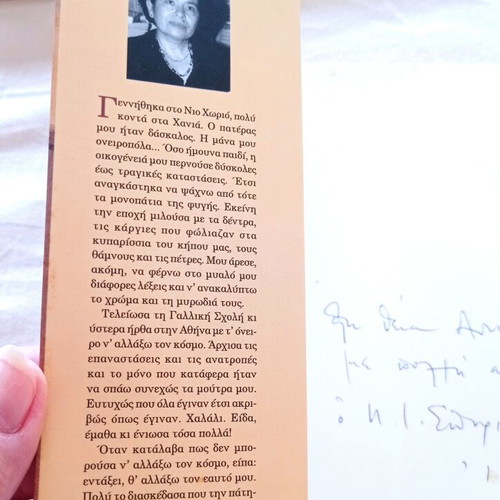 Γεννήθηκα στο Νιο Χωριό, πολύ
κοντά στα Χανιά. Ο πατέρας
μου ήταν δάσκαλος. Η μάνα μου
ονειροπόλα... Όσο ήμουνα παιδί, η
οικογένειά μου περνούσε δύσκολες
έως τραγικές καταστάσεις. Έτσι
αναγκάστηκα να ψάχνω από τότε
τα μονοπάτια της φυγής. Εκείνη
την εποχή μιλούσα με τα δέντρα,
τις κάργιες που φώλιαζαν στα
κυπαρίσσια του κήπου μας, τους
θάμνους και τις πέτρες. Μου άρεσε,
ακόμη, να φέρνω στο μυαλό μου
διάφορες λέξεις και ν' ανακαλύπτω
το χρώμα και τη μυρωδιά τους.
Τελείωσα τη Γαλλική Σχολή κι
ύστερα ήρθα στην Αθήνα με τ' όνει-
ρο ν' αλλάξω τον κόσμο. Άρχισα τις
επαναστάσεις και τις ανατροπές
και το μόνο που κατάφερα ήταν
να σπάω συνεχώς τα μούτρα μου.
Ευτυχώς που όλα έγιναν έτσι ακρι-
βώς όπως έγιναν. Χαλάλι. Είδα,
έμαθα κι ένιωσα τόσα πολλά!
Όταν κατάλαβα πως δεν μπο-
ρούσα ν' αλλάξω τον κόσμο, είπα:
εντάξει, θ' αλλάξω τον εαυτό μου.
Πολύ το διασκέδασα που την πάτη-
με πολλή